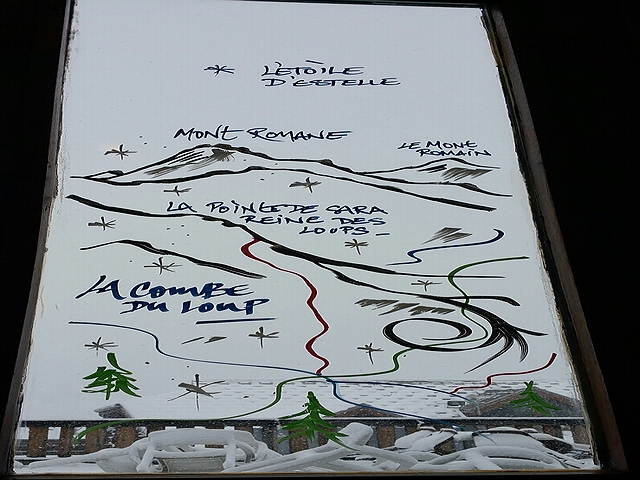 L'ETOILE
D'ESTELLE
MONT ROMANE
LE MONT
ROMAIN
LA POINTE DE SARA
REINE DES
LOUPS
LA COMBE
DU LOUP